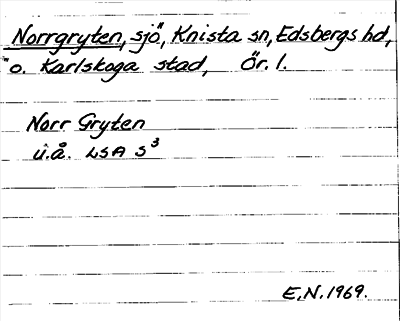 Norrgryten, sjö, Knista sn, Edsbergs hd,
o. Karlskoga stad, Ör. l.
Norr Gryten
u.å. LSA S³
E.N. 1969.